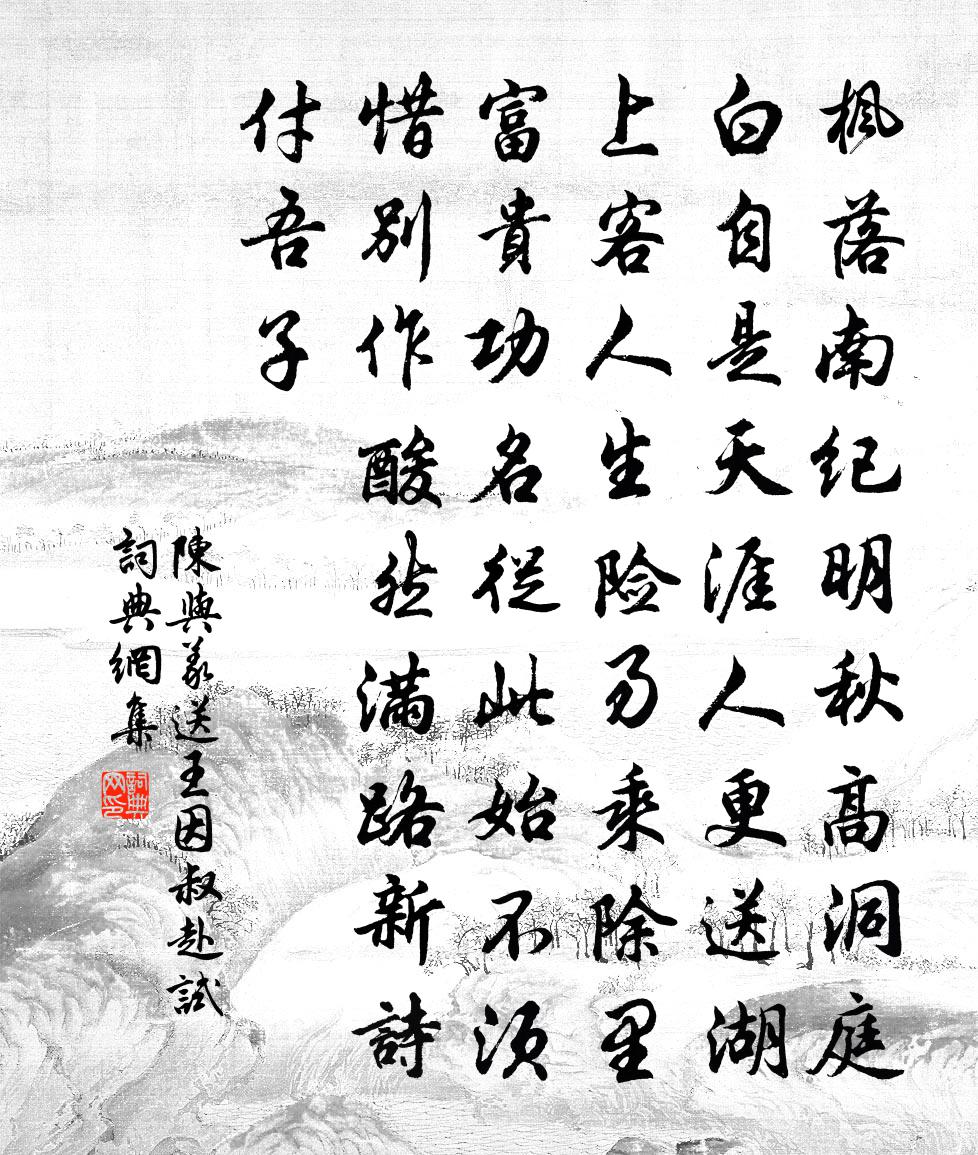 枫落南纪明秋高洞庭
白自是天涯人更送湖
上客人生险易乘除里
富貴功名從此始不须
惜别作酸然满路新詩
付吾子
陳與義送王因叔赴試
詞典網集
詞典网印